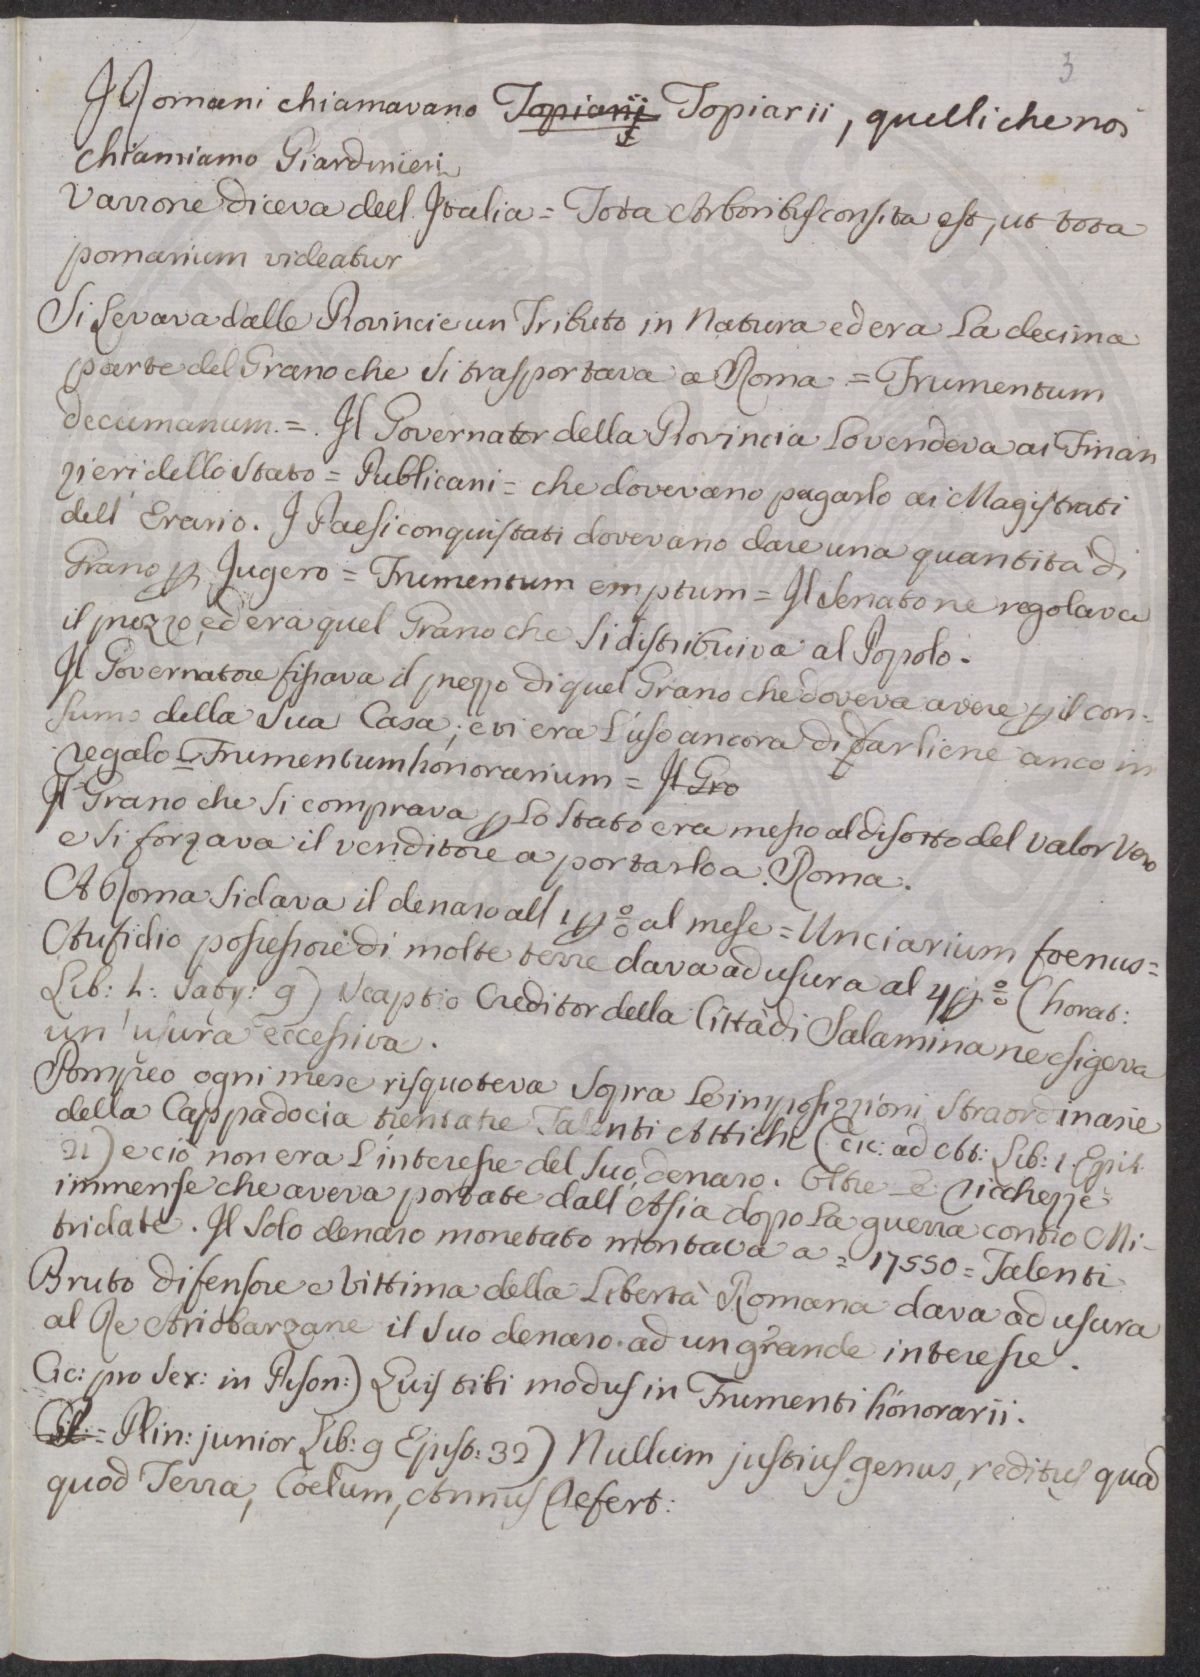 3
I Romani chiamavano Topiarij Topiarii, quelli che noi
chiamiamo Giardinieri
Varrone diceva dell'Italia = Tota Arboribus consita est, ut tota
pomarium videatur
Si levava dalle Provincie un Tributo in Natura ed era la decima
parte del Grano che si trasportava a Roma = Frumentum
decumanum. =. Il Governator della Provincia lo vendeva ai Finan
zieri dello Stato = Publicani = che dovevano pagarlo ai Magistrati
dell' Erario. I Paesi conquistati dovevano dare una quantità di
Grano p Jugero = Frumentum emptum = Il Senato ne regolava
il prezzo, ed era quel Grano che si distribuiva al Popolo.
Il Governatore fissava il prezzo di quel Grano che doveva avere p il con-
sumo della sua Casa; e vi era l'uso ancora di darliene anco in
regalo = Frumentum honorarium = Il Gro
Il Grano che si comprava p lo Stato era messo al disotto del valor vero
e si forzava il venditore a portarlo a Roma.
A Roma si dava il denaro all 1 p % al mese = Unciarium foenus =
Aufidio possessore di molte terre dava ad usura al 4 p % (horat:
Lib: 1: Saty: 9) Scaptio Creditor della Città di Salamina ne esigeva
un'usura eccessiva.
Pompeo ogni mese risquoteva sopra le imposizzioni straordinarie
della Cappadocia trentatre Talenti Attichi (Cic: ad Att: Lib: 1. Epist.
21) e ciò non era l'interesse del suo denaro. Oltre le ricchezze
immense che aveva portate dall'Asia dopo la guerra contro Mi-
tridate. Il solo denaro monetato montava a = 17550 = Talenti
Bruto difensore e vittima della Libertà Romana dava ad usura
al Re Ariobarzane il suo denaro ad un grande interesse.
Cic: pro Sex: in Pison:) Quis tibi modus in Frumenti honorarii.
= Plin: junior Lib: 9 Epist: 32) Nullum justius genus, reditus quad
quod Terra, Coelum, Annus Refert: